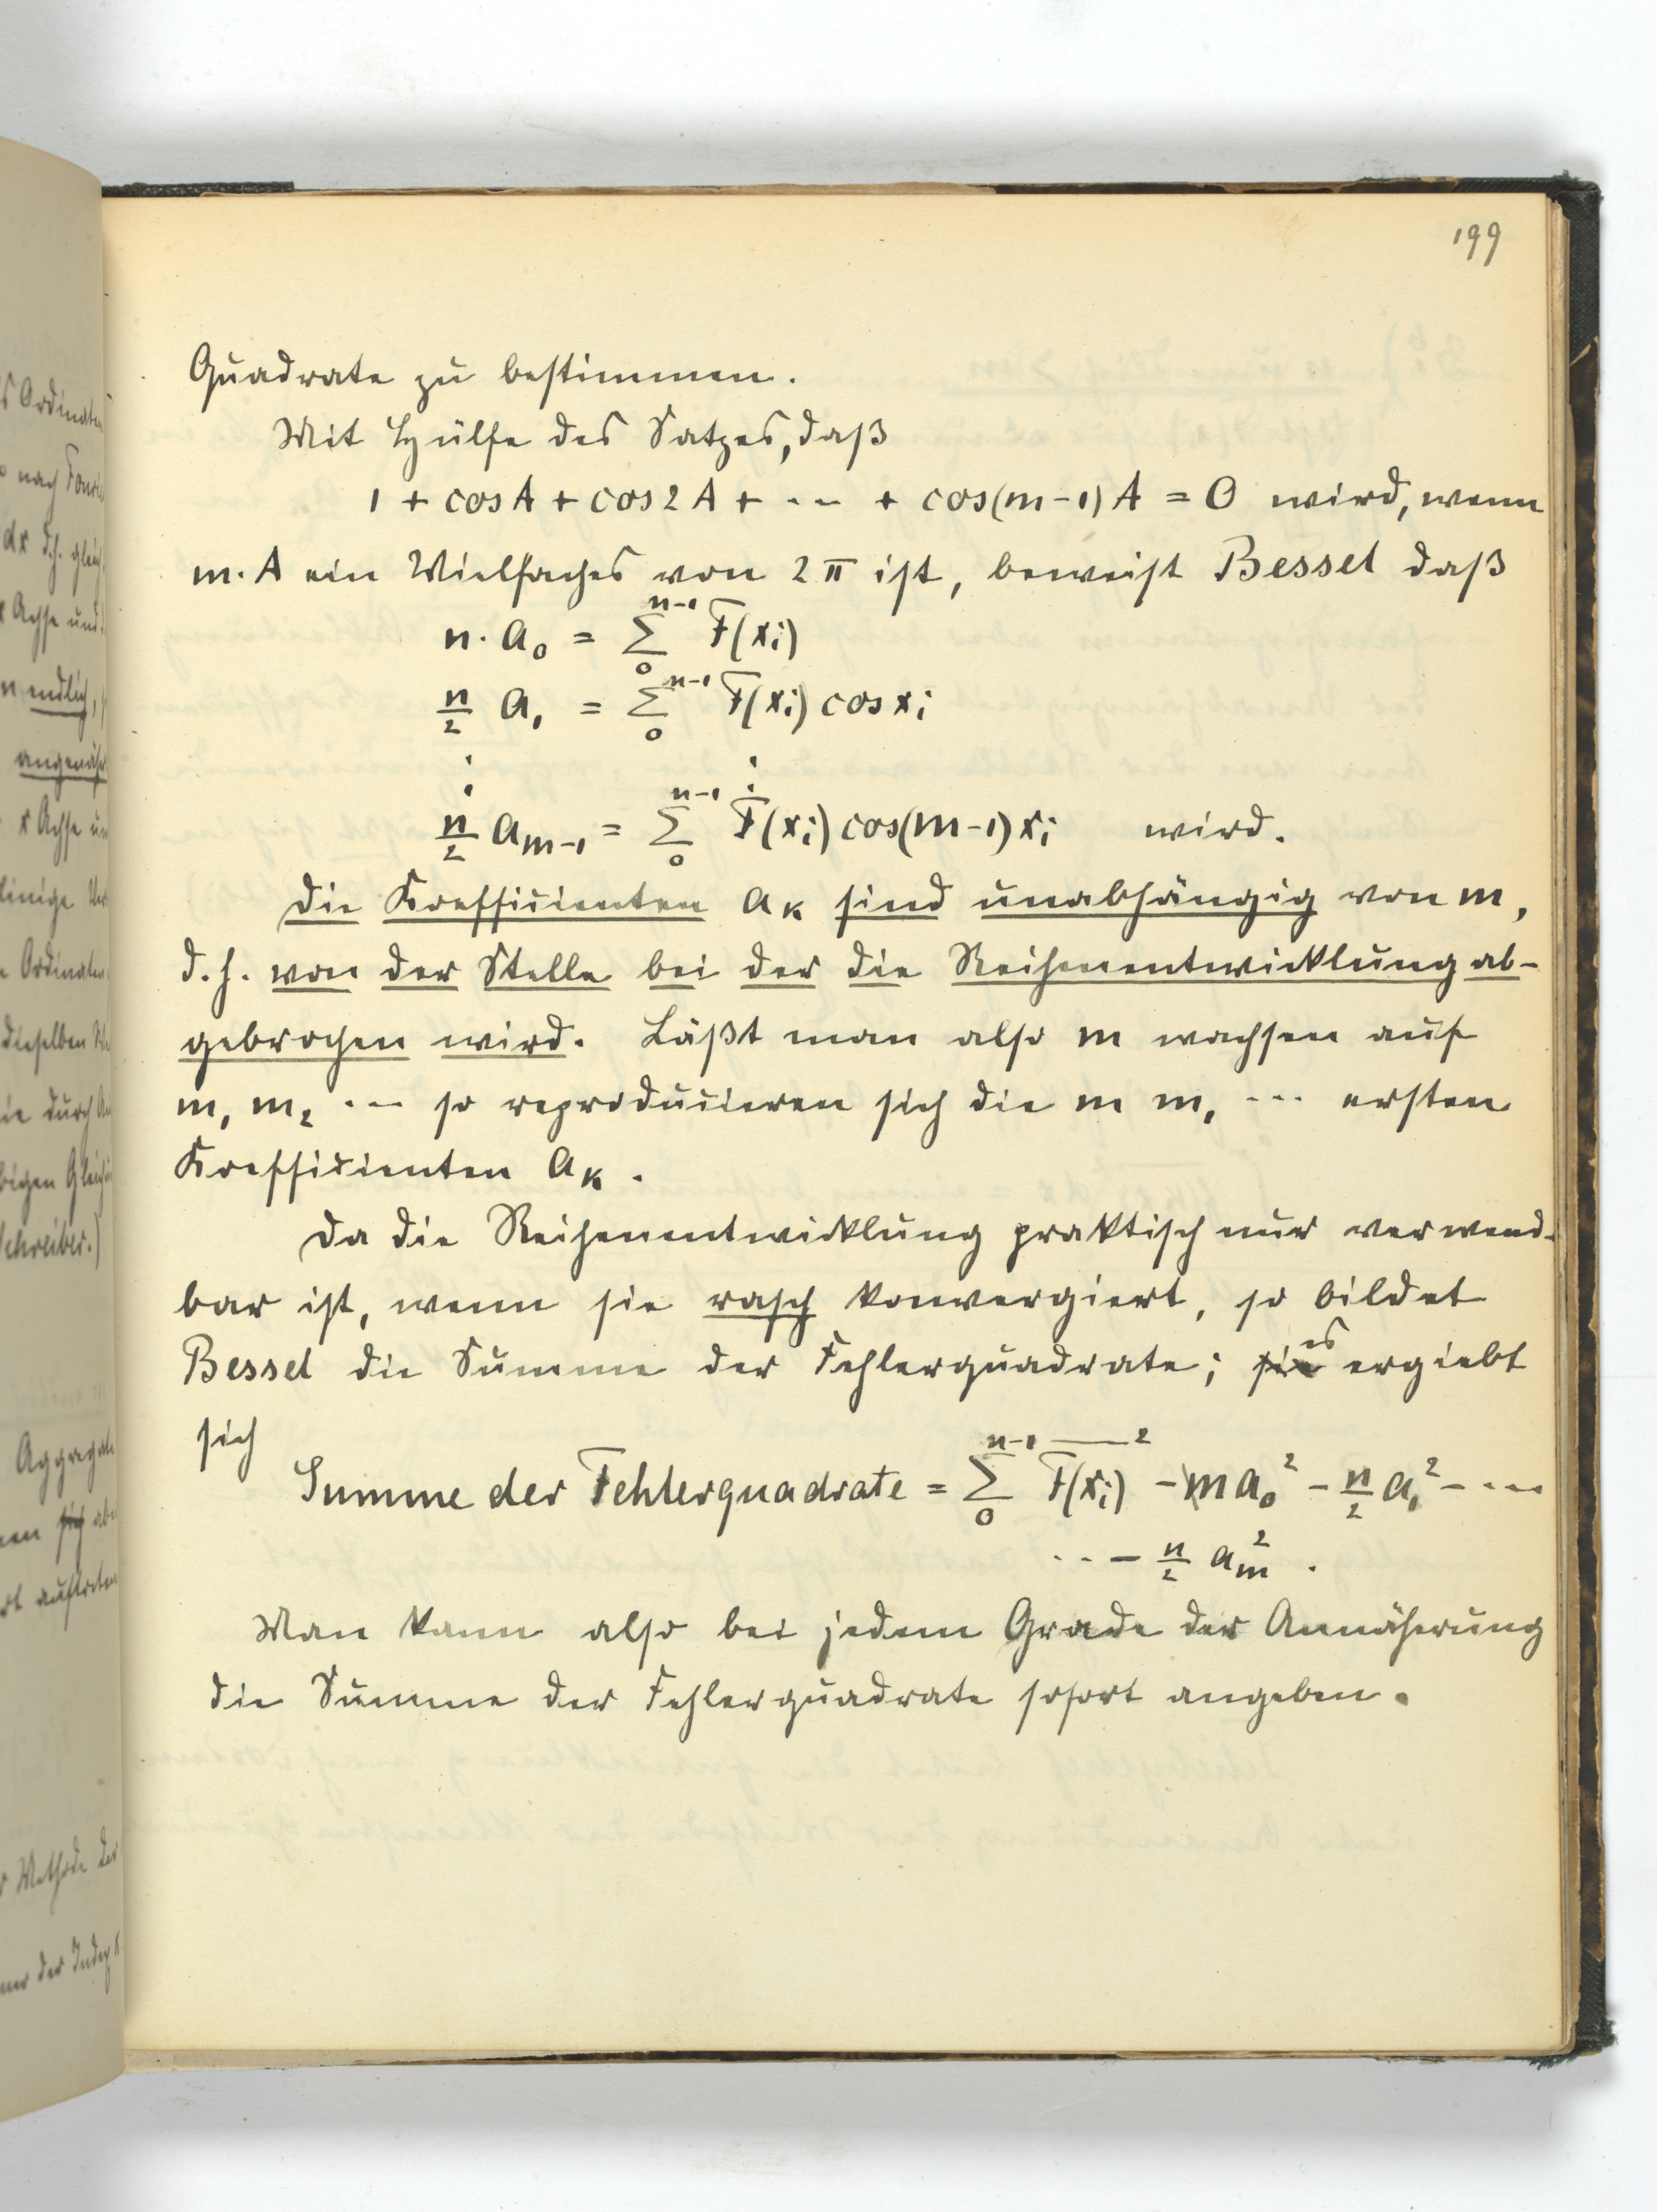 199
Quadrate zu bestimmen.
Mit Hülfe des Satzes, daß
1 + cos A + cos 2 A + ... + cos (m-1) A = 0 wird, wenn
m. A ein Vielfaches von 2 π ist, beweist Bessel daß
n. a₀ = Σ₀ⁿ⁻¹ F(xᵢ)
n/2 a₁ = Σ₀ⁿ⁻¹ F(xᵢ) cos xᵢ
⋮ ⋮
n/2 aₘ₋₁ = Σ₀ⁿ⁻¹ F(xᵢ) cos(m-1) xᵢ wird.
Die Koefficienten aₖ sind unabhängig von m,
d.h. von der Stelle bei der die Reihenentwicklung ab-
gebrochen wird. Läßt man also m wachsen auf
m₁ m₂ ... so reproducieren sich die m m₁ ... ersten
Koefficienten aₖ.
Da die Reihenentwicklung praktisch nur verwend-
bar ist, wenn sie rasch konvergiert, so bildet
Bessel die Summe der Fehlerquadrate; es ergiebt
sich
Summe der Fehlerquadrate = Σ₀ⁿ⁻¹ F(xᵢ)² - m a₀² - n/2 a₁² - ...
... - n/2 aₘ².
Man kann also bei jedem Grade der Annäherung
die Summe der Fehlerquadrate sofort angeben.